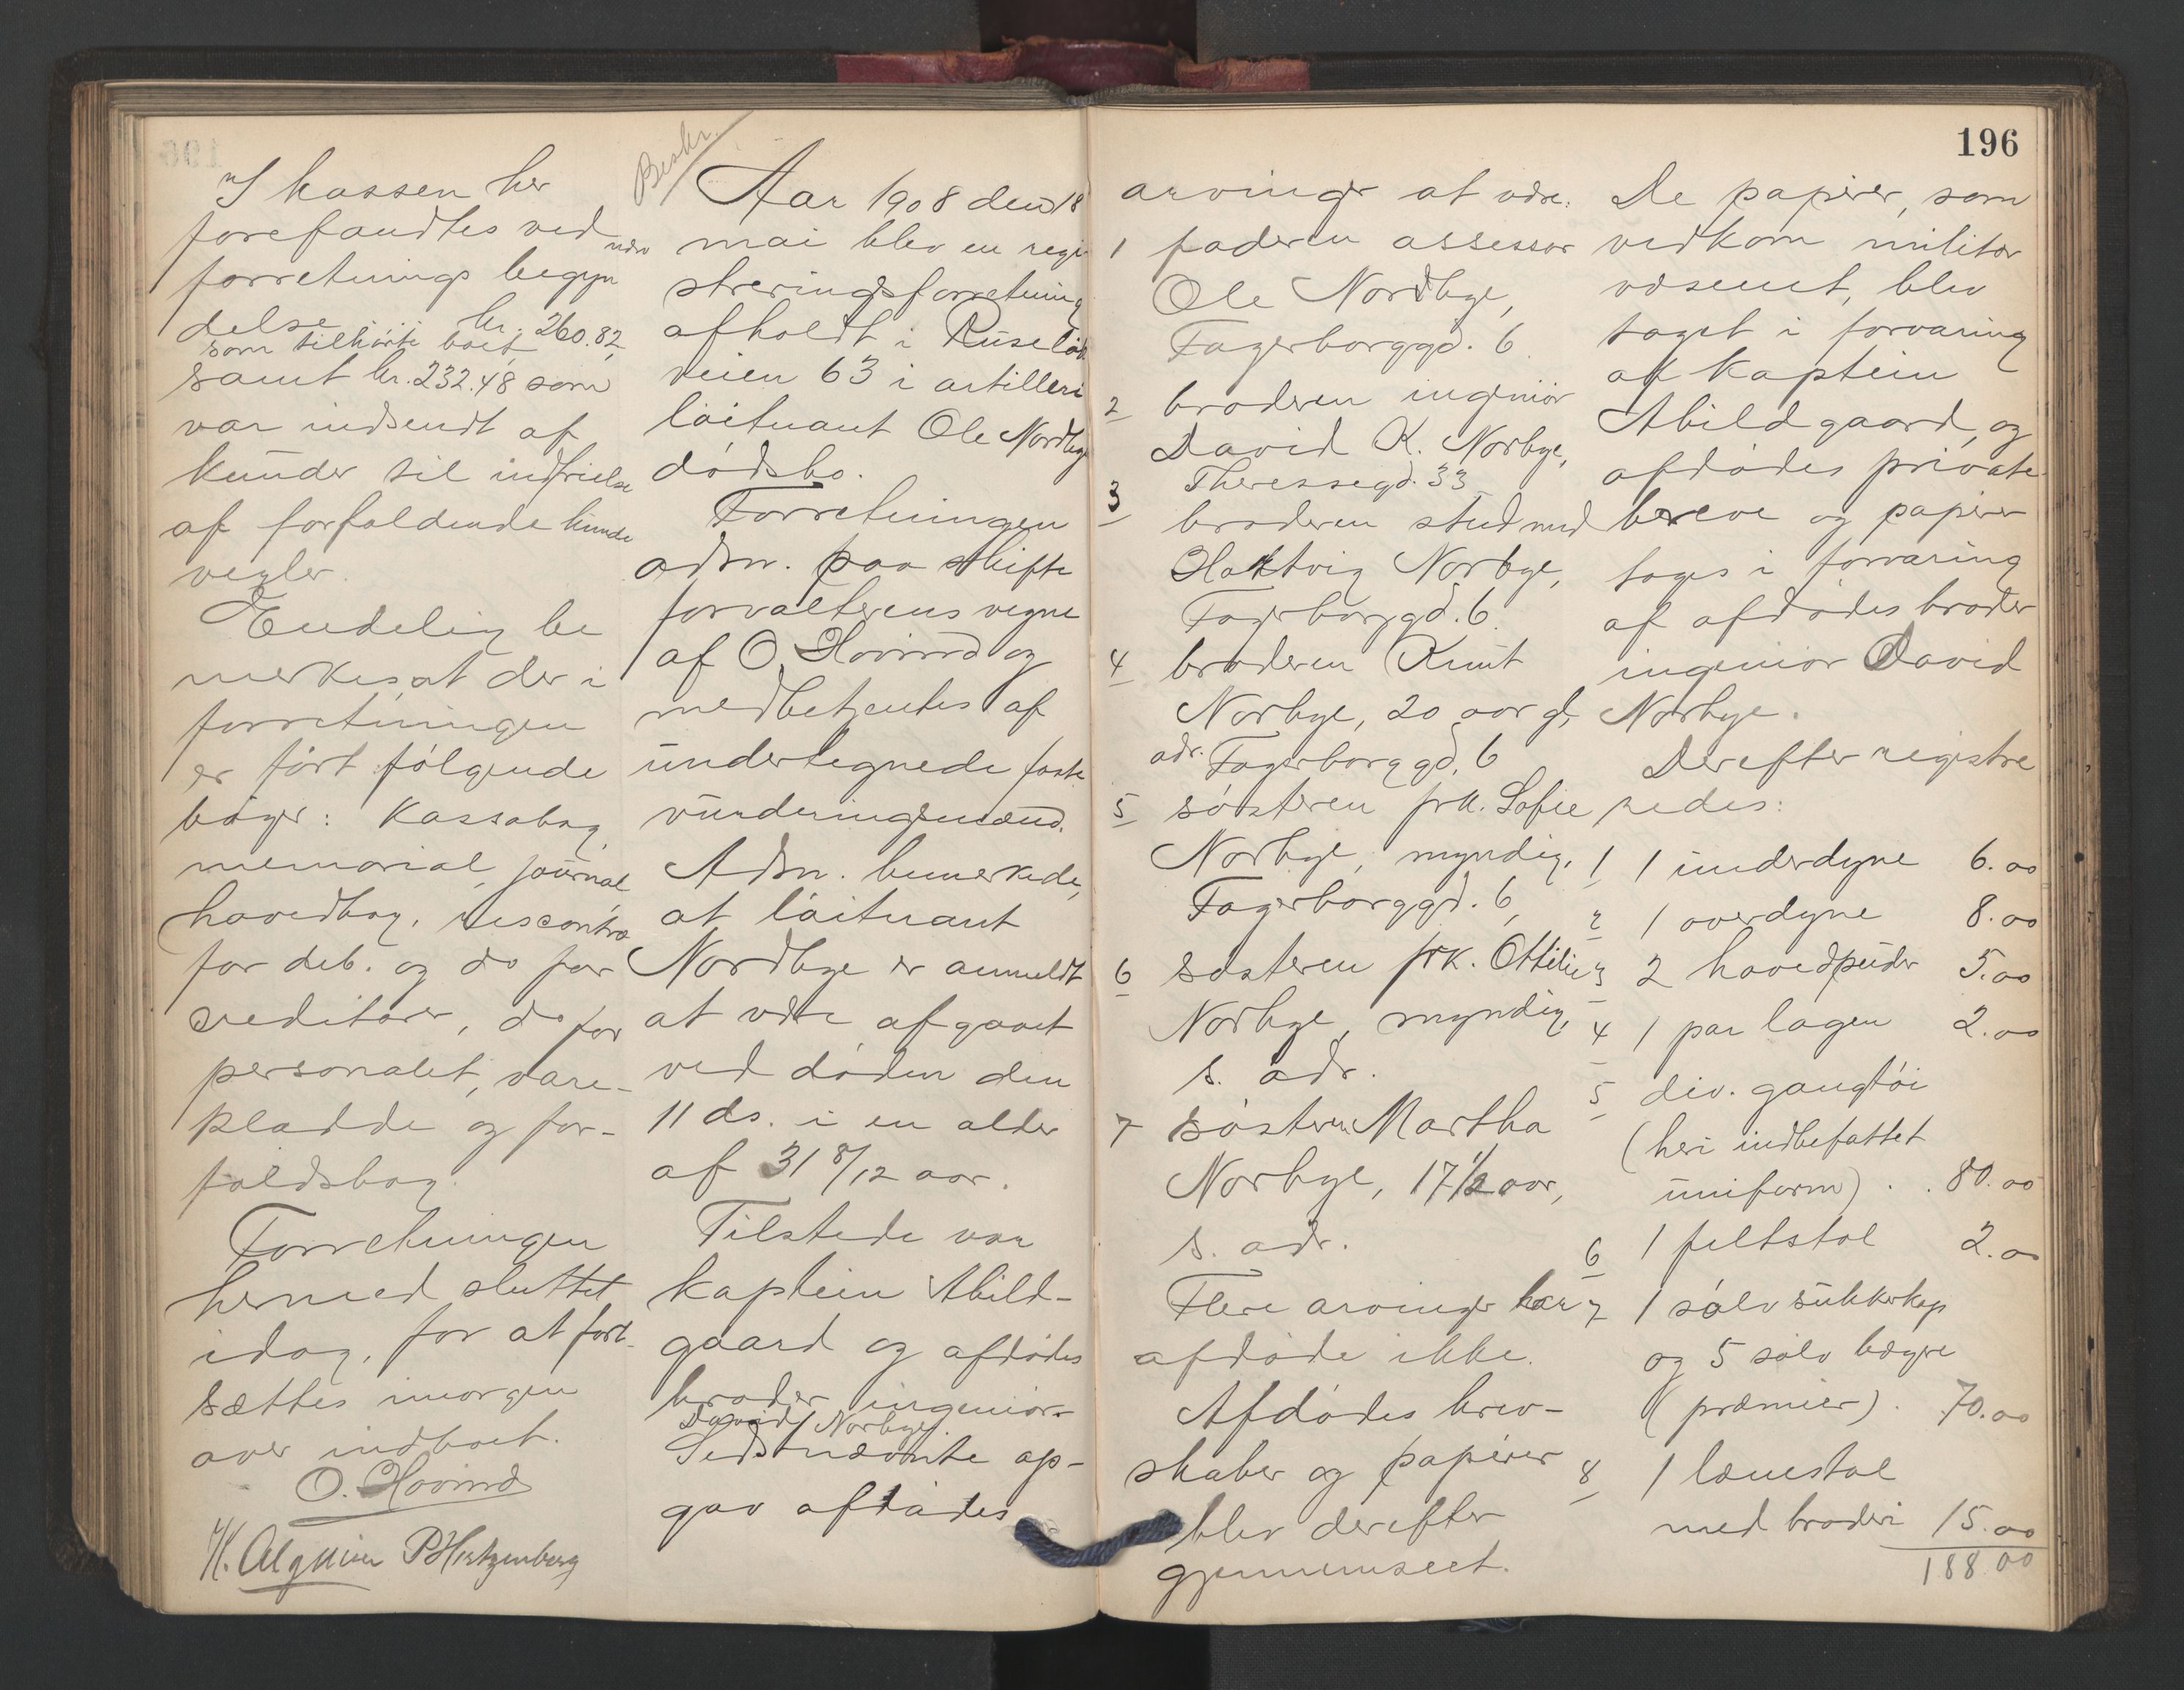 I kassen her
forefandtes ved nærv
forretnings begyn
delse kr. 260.82,
som tilhörte boet,
samt kr. 232.48 som
var indsendt af
kunder til indfrielse
af forfaldende kunde
vexler.
Endelig be
merkes, at der i
forretningen
er fört fölgende
böger: Kassabog,
memorial, journal,
hovedbog, rescontra
for deb. og do for
creditorer, do for
personalet, vare-
kladde og for-
faldsbog.
Forretningen
hermed sluttet
idag, for at fort-
sættes imorgen
over indboet.
O. Hovind
H. Alguien P Hertzenberg
Beskr.
Aar 1908 den 18
mai blev en regi
streringsforretning
afholdt i Ruselök
veien 63 i artilleri
löitnant Ole Nordbye
dödsbo.
Forretningen
adm. paa skifte
forvalterens vegne
af O. Hovind og
medbetjentes af
undertegnede faste
vurderingsmænd.
Adm. bemerkede,
at löitnant
Nordbye er anmeldt
at være afgaaet
ved döden den
11 ds. i en alder
af 31 8/12 aar.
Tilstede var
kaptein Abild-
gaard og afdödes
broder ingeniör
David Norbye.
Sidstnævnte op-
gav afdödes
196
arvinger at være:
1 faderen assessor
Ole Nordbye,
Fagerborggd. 6.
2 broderen ingeniör
David K. Norbye,
Theressegd. 33
3 broderen stud med
Haktvig Norbye,
Fagerborggd. 6.
4 broderen Knut
Norbye, 20 aar gl,
adr. Fagerborggd. 6
5 sösteren frk. Sofie
Norbye, myndig,
Fagerborggd. 6,
6 sösteren frk. Ottilie
Norbye, myndig,
s. adr.
7 sösteren Martha
Norbye, 17 1/2 aar,
s. adr.
Flere arvinger har
afdöde ikke.
Afdödes brev-
skaber og papirer
blev derefter
gjennemseet.
De papirer, som
vedkom militær
væsenet, blev
taget i forvaring
af kaptein
Abildgaard, og
afdödes private
breve og papirer
toges i forvaring
af afdödes broder
ingeniör David
Norbye.
Derefter registre
redes:
1 1 underdyne 6.00
2 1 overdyne 8.00
3 2 hovedpuder 5.00
4 1 par lagen 2.00
5 div. gangtöi
(heri indbefattet
uniform) . . 80.00
6 1 feltstol 2.00
7 1 sölv sukkerkop
og 5 sölv bægre
(præmier) . 70.00
8 1 lænestol
med broderi 15.00
188.00